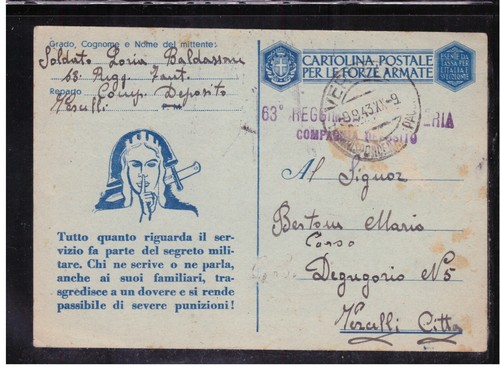 Grado, Cognome e Nome del mittente:
Soldato Loria Baldassone
63. Regg. Fant.
Reparto Comp. Deposito
Vercelli
Tutto quanto riguarda il ser-
vizio fa parte del segreto mili-
tare. Chi ne scrive o ne parla,
anche ai suoi familiari, tra-
sgredisce a un dovere e si rende
passibile di severe punizioni!
CARTOLINA POSTALE
PER LE FORZE ARMATE
ESENTE DA
TASSA PER
L'ITALIA E
63° REGGIM ERIA
COMPAGNIA DEPOSITO
Al Signor
Bertone Mario
Corso
Degregorio N5
Vercelli Città